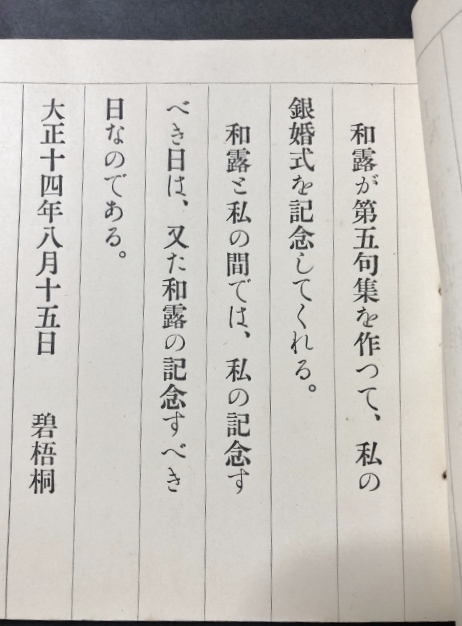 和露が第五句集を作つて、私の
銀婚式を記念してくれる。
和露と私の間では、私の記念す
べき日は、又た和露の記念すべき
日なのである。
大正十四年八月十五日　碧梧桐